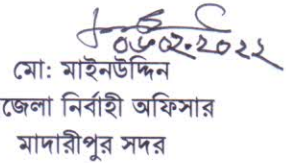 ০৬.০২.২০২২
মো: মাইনউদ্দিন
জেলা নির্বাহী অফিসার
মাদারীপুর সদর